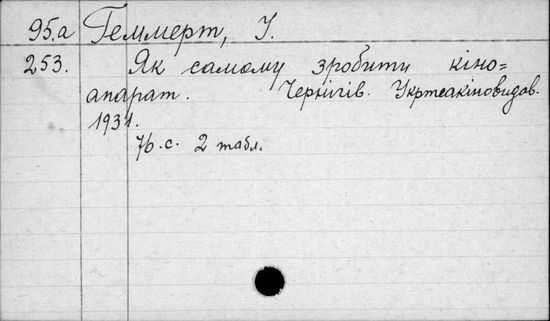 95.а Геммерт, У.
253. Як самому зробити кіно=
апарат. Чернігів. Укртеакіновидав.
1931.
76.с. 2 табл.